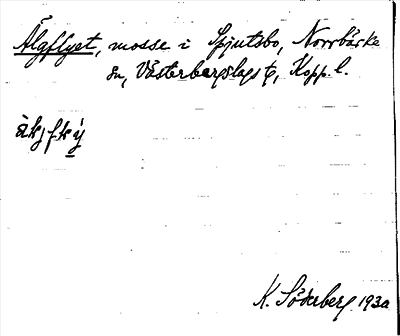 Älgflyet, mosse i Spjutsbo, Norrbärke
sn, Västerbergslags t, Kopp. l.
K. Söderberg 1930